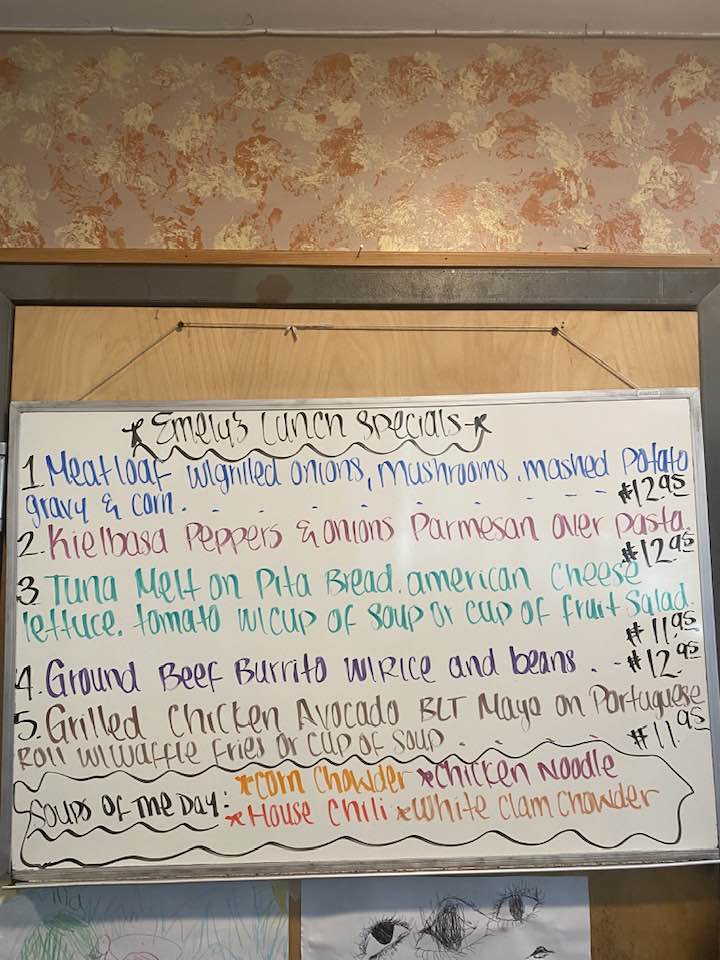 ★ Emely's Lunch Specials ★
1. Meatloaf w/grilled onions, mushrooms. mashed Potato
gravy & corn. - - - - - - - $12.95
2. Kielbasa Peppers & onions Parmesan over pasta.
$12.95
3 Tuna Melt on Pita Bread. american cheese
lettuce. tomato w/cup of soup or cup of fruit salad.
$11.95
4. Ground Beef Burrito w/Rice and beans. - $12.95
5. Grilled Chicken Avocado BLT Mayo on Portuguese
Roll w/waffle fries or cup of soup. - - - $11.95
Soups of the Day: ★Corn Chowder ★Chicken Noodle
★House Chili ★White Clam Chowder